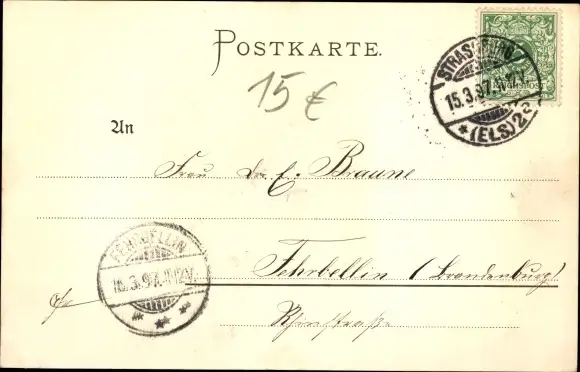 POSTKARTE.
STRASSBURG
15.3.97.
*(ELS)2a
REICHSPOST
15 €
An
Frau Dr. E. Braune
FEHRBELLIN
16.3.97.
Fehrbellin (Brandenburg)